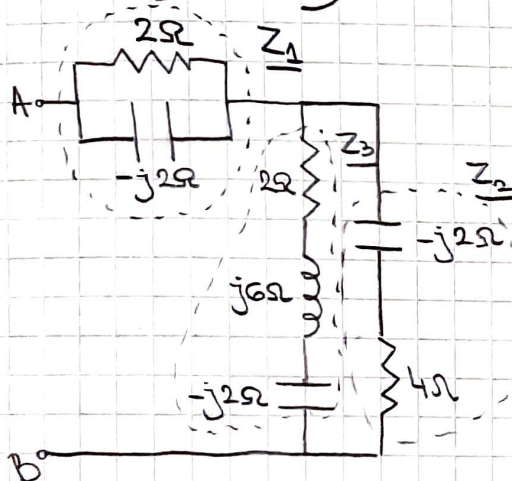 2Ω
Z1
A
-j2Ω
Z3
2Ω
Z2
-j2Ω
j6Ω
-j2Ω
4Ω
B